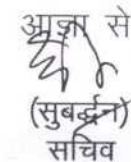 आज्ञा से
(सुबर्द्धन)
सचिव